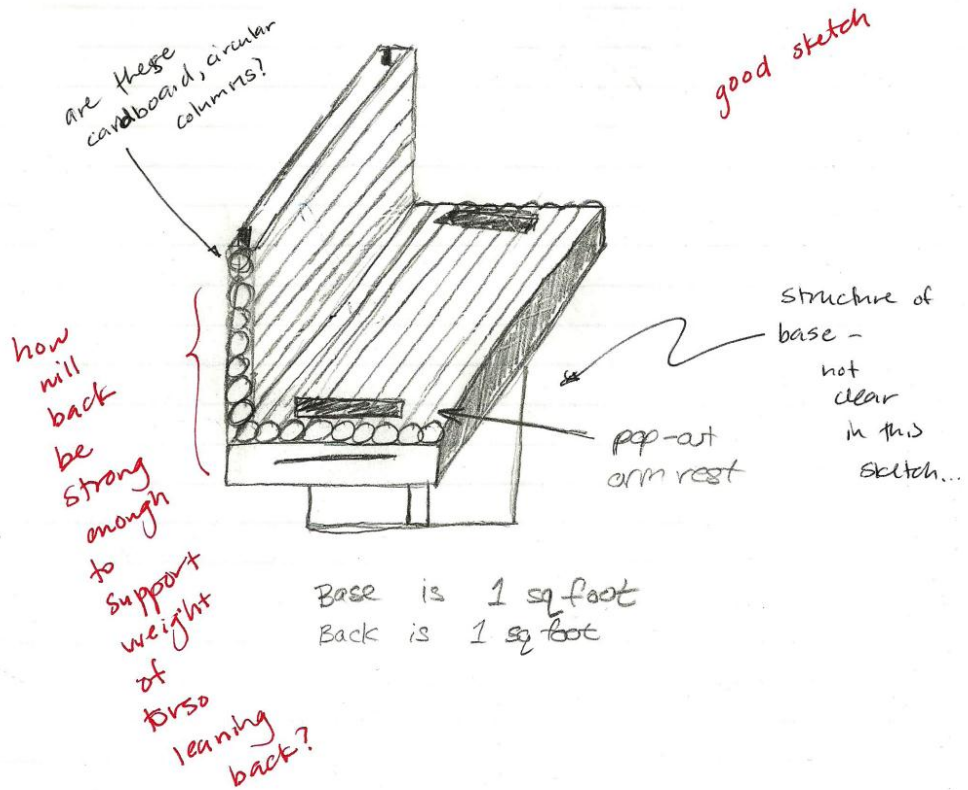 are these
cardboard, circular
columns?
good sketch
how
will
back
be
strong
enough
to
support
weight
of
torso
leaning
back?
structure of
base -
not
clear
in this
sketch...
pop-out
arm rest
Base is 1 sq foot
Back is 1 sq foot